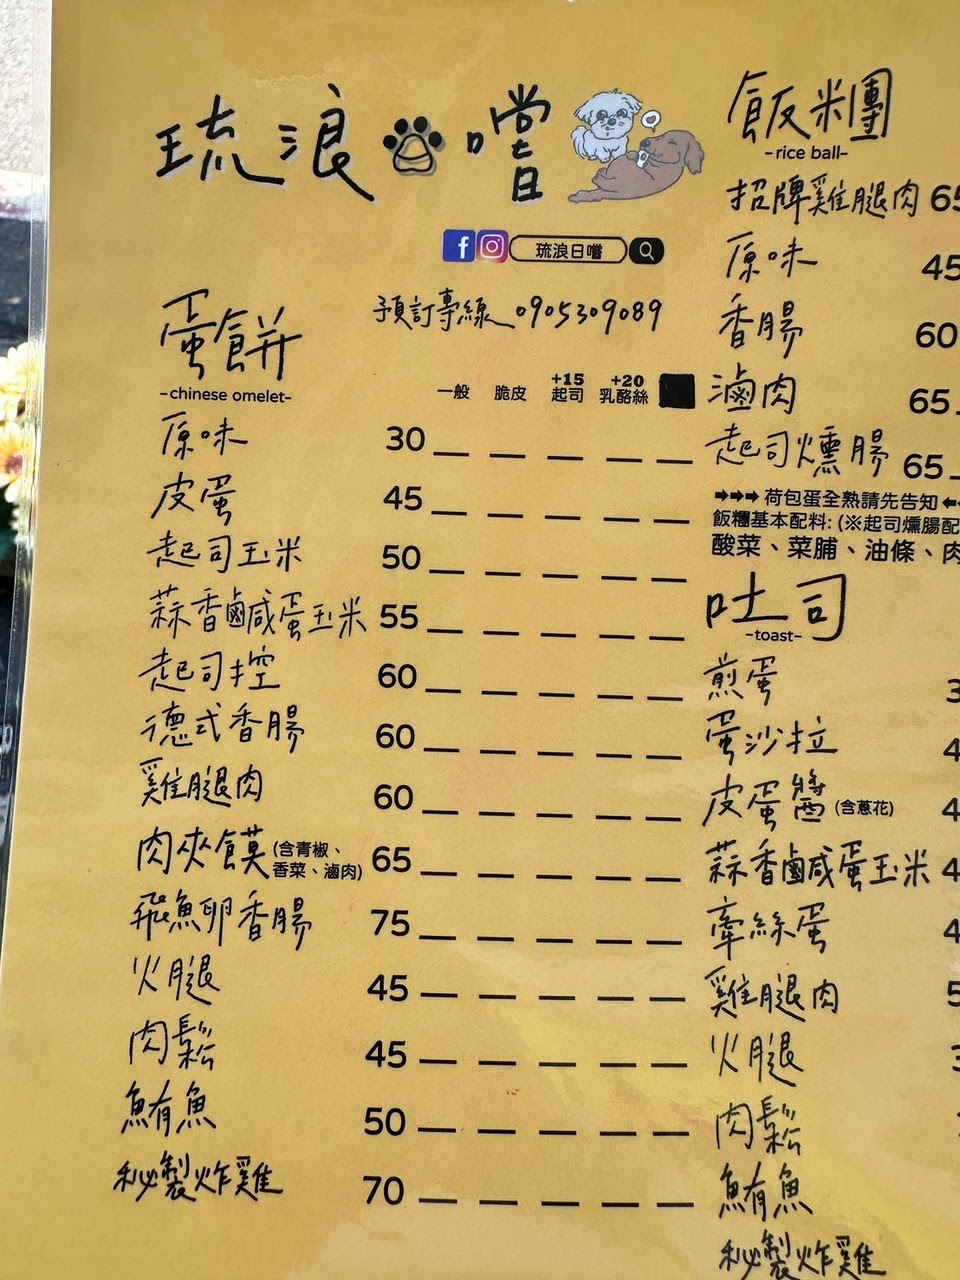 琉浪嚐
琉浪日嚐
預訂專線 0905309089
蛋餅
-chinese omelet-
一般 脆皮 +15 起司 +20 乳酪絲
原味 30
皮蛋 45
起司玉米 50
蒜香鹹蛋玉米 55
起司控 60
德式香腸 60
雞腿肉 60
肉夾饃 (含青椒、香菜、滷肉) 65
飛魚卵香腸 75
火腿 45
肉鬆 45
鮪魚 50
秘製炸雞 70
飯米團
-rice ball-
招牌雞腿肉 65
原味 45
香腸 60
滷肉 65
起司燻腸 65
➡➡➡ 荷包蛋全熟請先告知 ⬅
飯糰基本配料: (※起司燻腸配
酸菜、菜脯、油條、肉
吐司
-toast-
煎蛋 3
蛋沙拉 4
皮蛋醬 (含蔥花) 4
蒜香鹹蛋玉米 4
牽絲蛋 4
雞腿肉 5
火腿 3
肉鬆
鮪魚
秘製炸雞